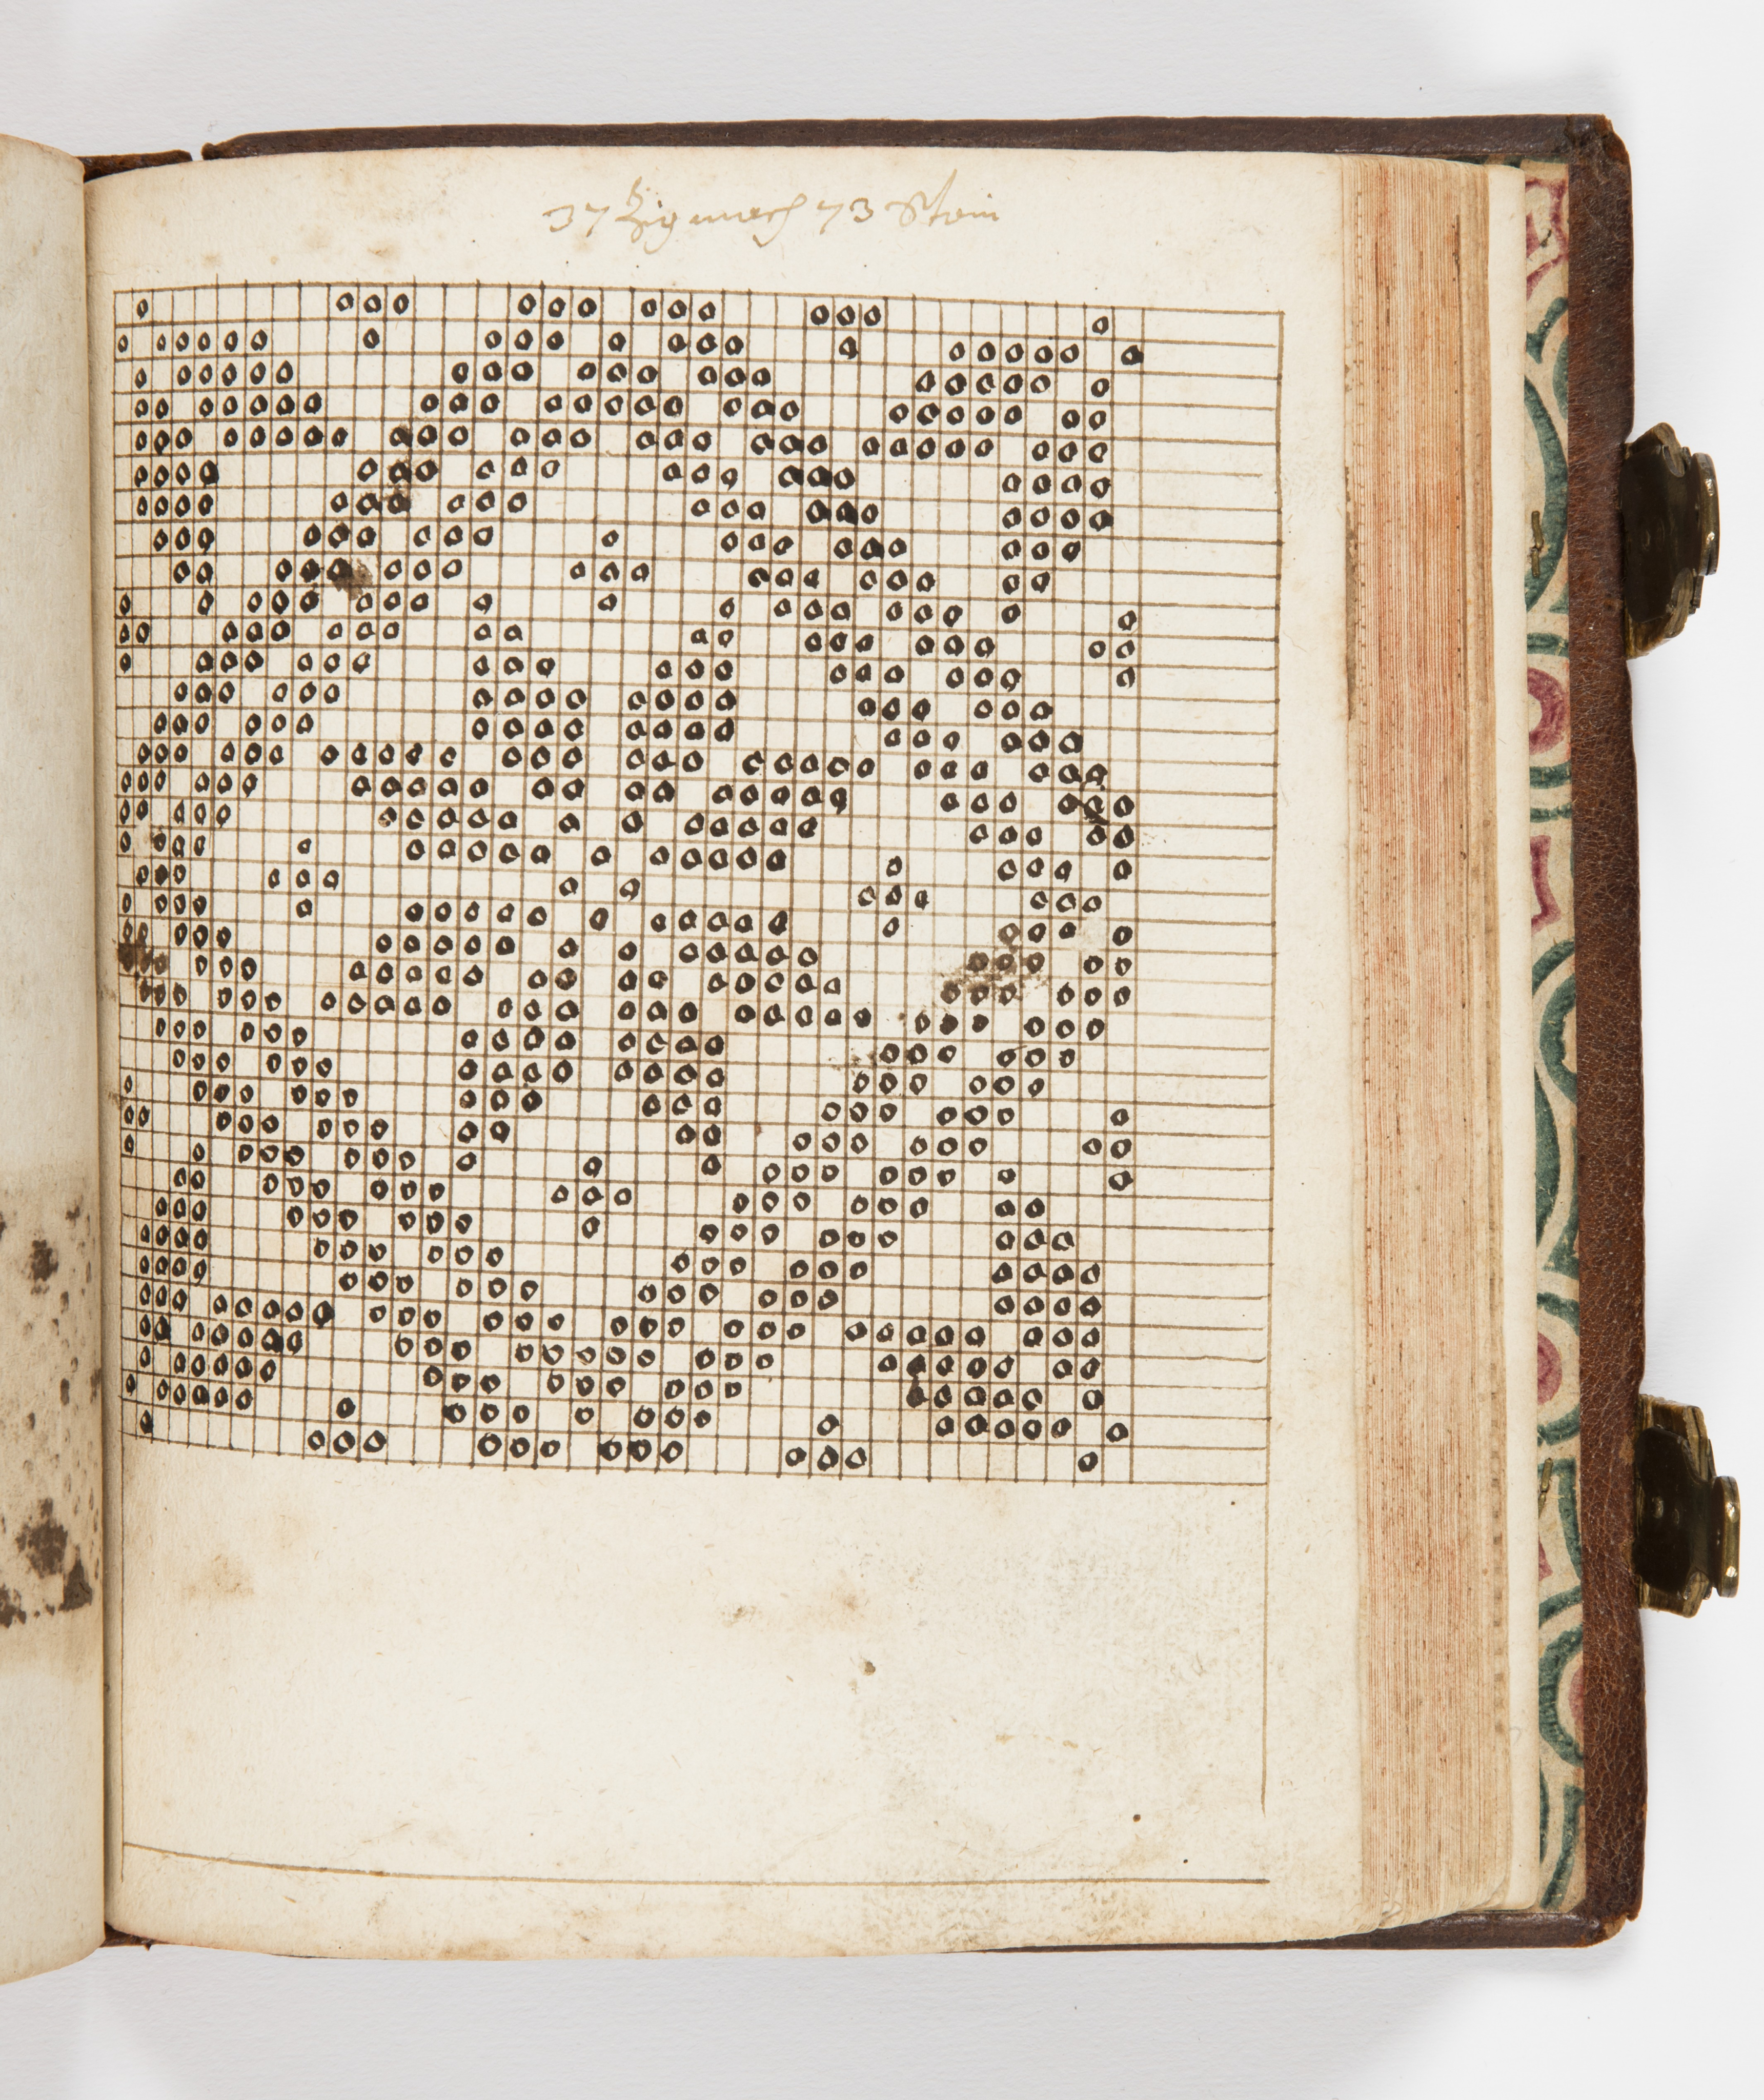 37 Zig mach 73 Stein